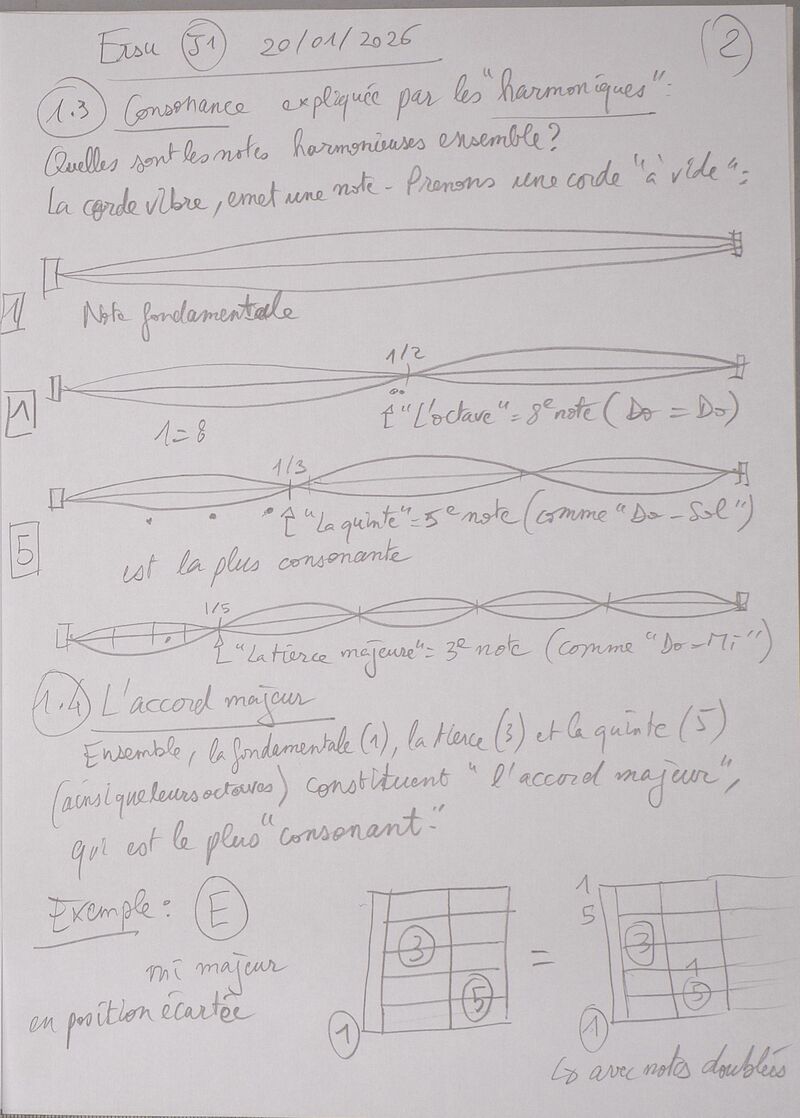 Ersu J1 20/01/2026 (2)
1.3 Consonance expliquée par les "harmoniques":
Quelles sont les notes harmonieuses ensemble?
La corde vibre, emet une note - Prenons une corde "à vide":
1
Note fondamentale
1/2
1
"L'octave" = 8e note (Do = Do)
1 = 8
1/3
"La quinte" = 5e note (comme "Do-Sol")
5
est la plus consonante
1/5
"La tierce majeure" = 3e note (comme "Do-Mi")
1.4 L'accord majeur
Ensemble, la fondamentale (1), la tierce (3) et la quinte (5)
(ainsi que leurs octaves) constituent "l'accord majeur",
qui est le plus "consonant"
Exemple: E
mi majeur
en position écartée
3
5
1
=
1
5
3
1
5
1
avec notes doublées